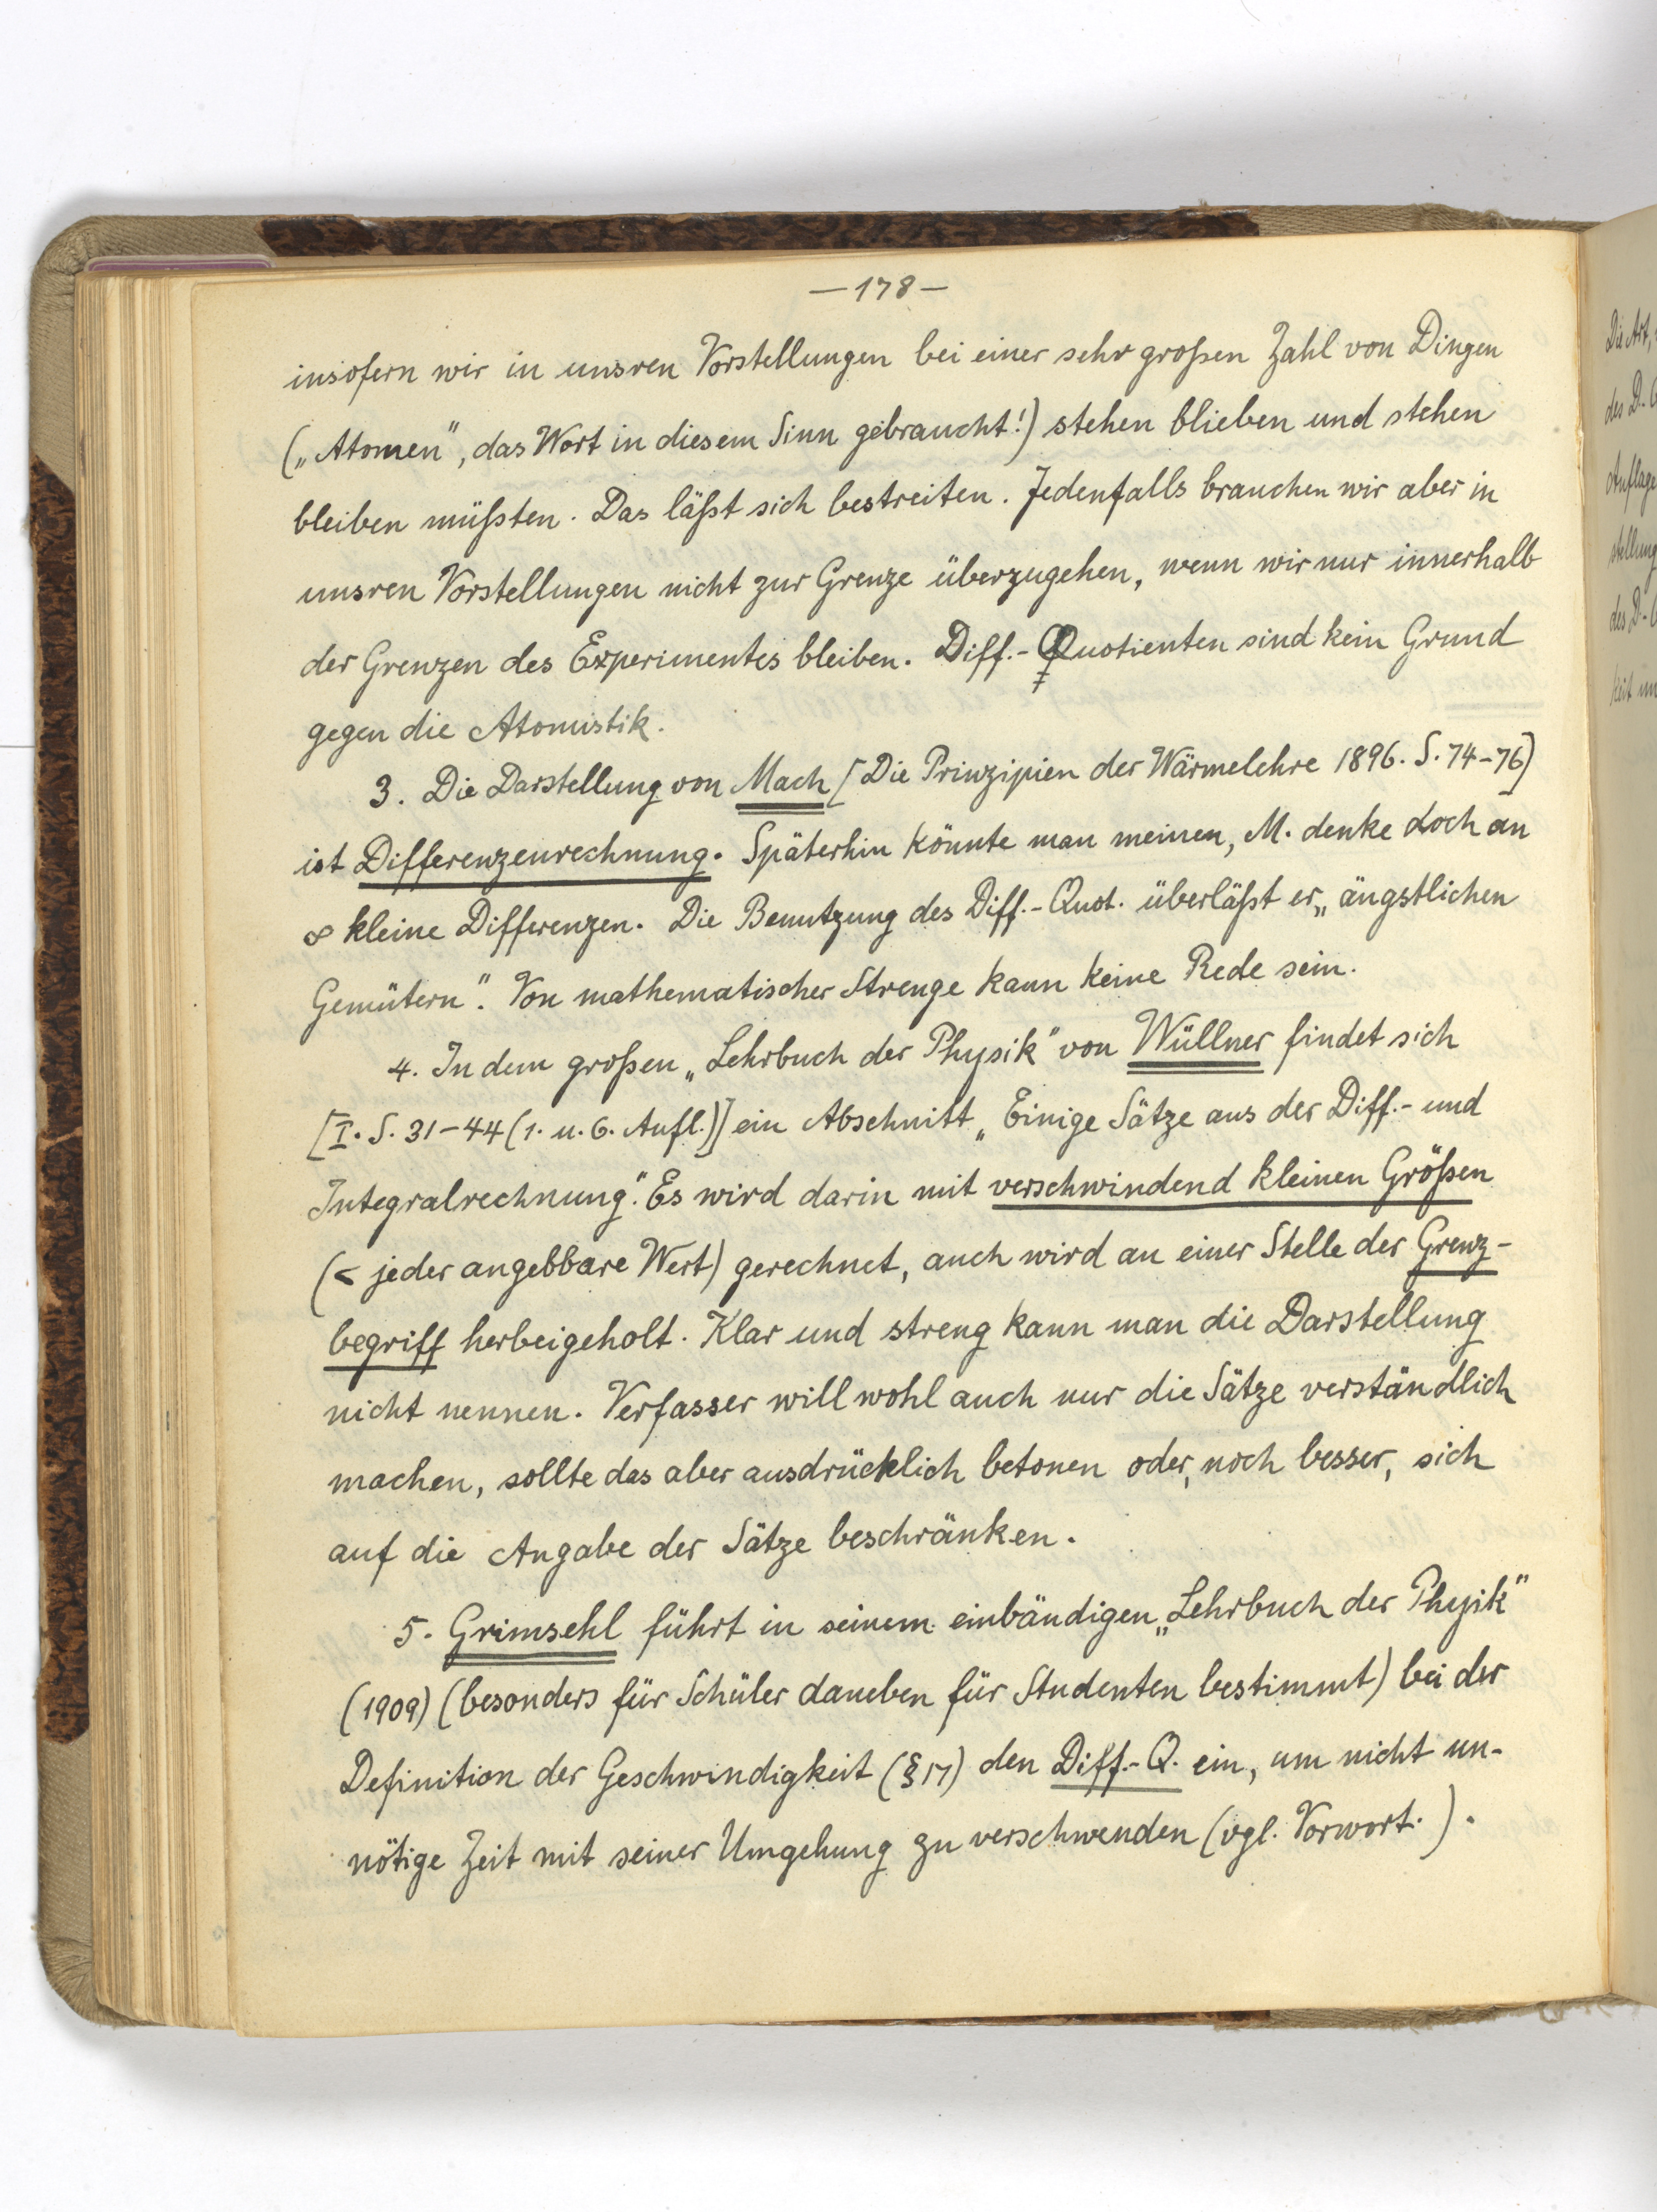 —178—
insofern wir in unsren Vorstellungen bei einer sehr großen Zahl von Dingen
(„Atomen“, das Wort in diesem Sinn gebraucht!) stehen blieben und stehen
bleiben müßten. Das läßt sich bestreiten. Jedenfalls brauchen wir aber in
unsren Vorstellungen nicht zur Grenze überzugehen, wenn wir nur innerhalb
der Grenzen des Experimentes bleiben. Diff.-Quotienten sind kein Grund
gegen die Atomistik.
3. Die Darstellung von Mach [Die Prinzipien der Wärmelehre 1896. S. 74–76]
ist Differenzenrechnung. Späterhin könnte man meinen, M. denke doch an
∞ kleine Differenzen. Die Benutzung des Diff.-Quot. überläßt er „ängstlichen
Gemütern“. Von mathematischer Strenge kann keine Rede sein.
4. In dem großen „Lehrbuch der Physik“ von Wüllner findet sich
[I. S. 31–44 (1. u. 6. Aufl.)] ein Abschnitt „Einige Sätze aus der Diff.- und
Integralrechnung“. Es wird darin mit verschwindend kleinen Größen
(< jeder angebbare Wert) gerechnet, auch wird an einer Stelle der Grenz-
begriff herbeigeholt. Klar und streng kann man die Darstellung
nicht nennen. Verfasser will wohl auch nur die Sätze verständlich
machen, sollte das aber ausdrücklich betonen oder, noch besser, sich
auf die Angabe der Sätze beschränken.
5. Grimsehl führt in seinem einbändigen „Lehrbuch der Physik“
(1909) (besonders für Schüler daneben für Studenten bestimmt) bei der
Definition der Geschwindigkeit (§ 17) den Diff.-Q. ein, um nicht un-
nötige Zeit mit seiner Umgehung zu verschwenden (vgl. Vorwort.).
Die Art,
des D.-
Auflage
stellung
des D.-